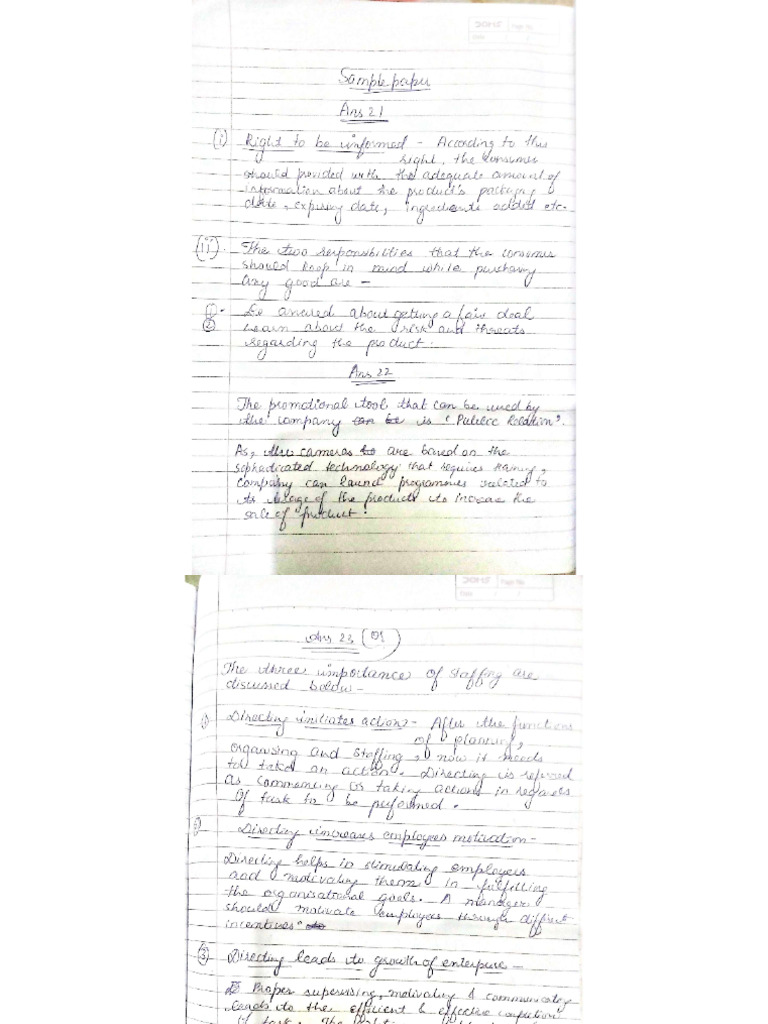 Sample paper
Ans 21
(i) Right to be informed - According to this
right, the consumer
should provided with the adequate amount of
information about the product's packaging
date, expiring date, ingredients added etc.
(ii). The two responsibilities that the consumer
should keep in mind while purchasing
any good are -
①- Be assured about getting a fair deal
② Learn about the risk and threats
regarding the product.
Ans 22
The promotional tool that can be used by
the company is "Public Relation".
As, the cameras are based on the
sophadicated technology that requires training,
Company can launch programmes related to
its usage of the products to increase the
sale of product.
Ans 23 (OR)
The three importance of staffing are
discussed below -
① Directing initiates action - After the functions
of planning,
organising and staffing, now it needs
to take an action. Directing is refered
as commenting or taking actions in regards
of task to be performed.
② Directing increases employees motivation -
Directing helps in stimulating employees
and motivating them in fulfilling
the organisational goals. A manager
should motivate employees through diffrent
incentives.
③ Directing leads to growth of enterprise -
Proper supervising, motivating & communicating
leads to the efficient & effective completion
of task. The